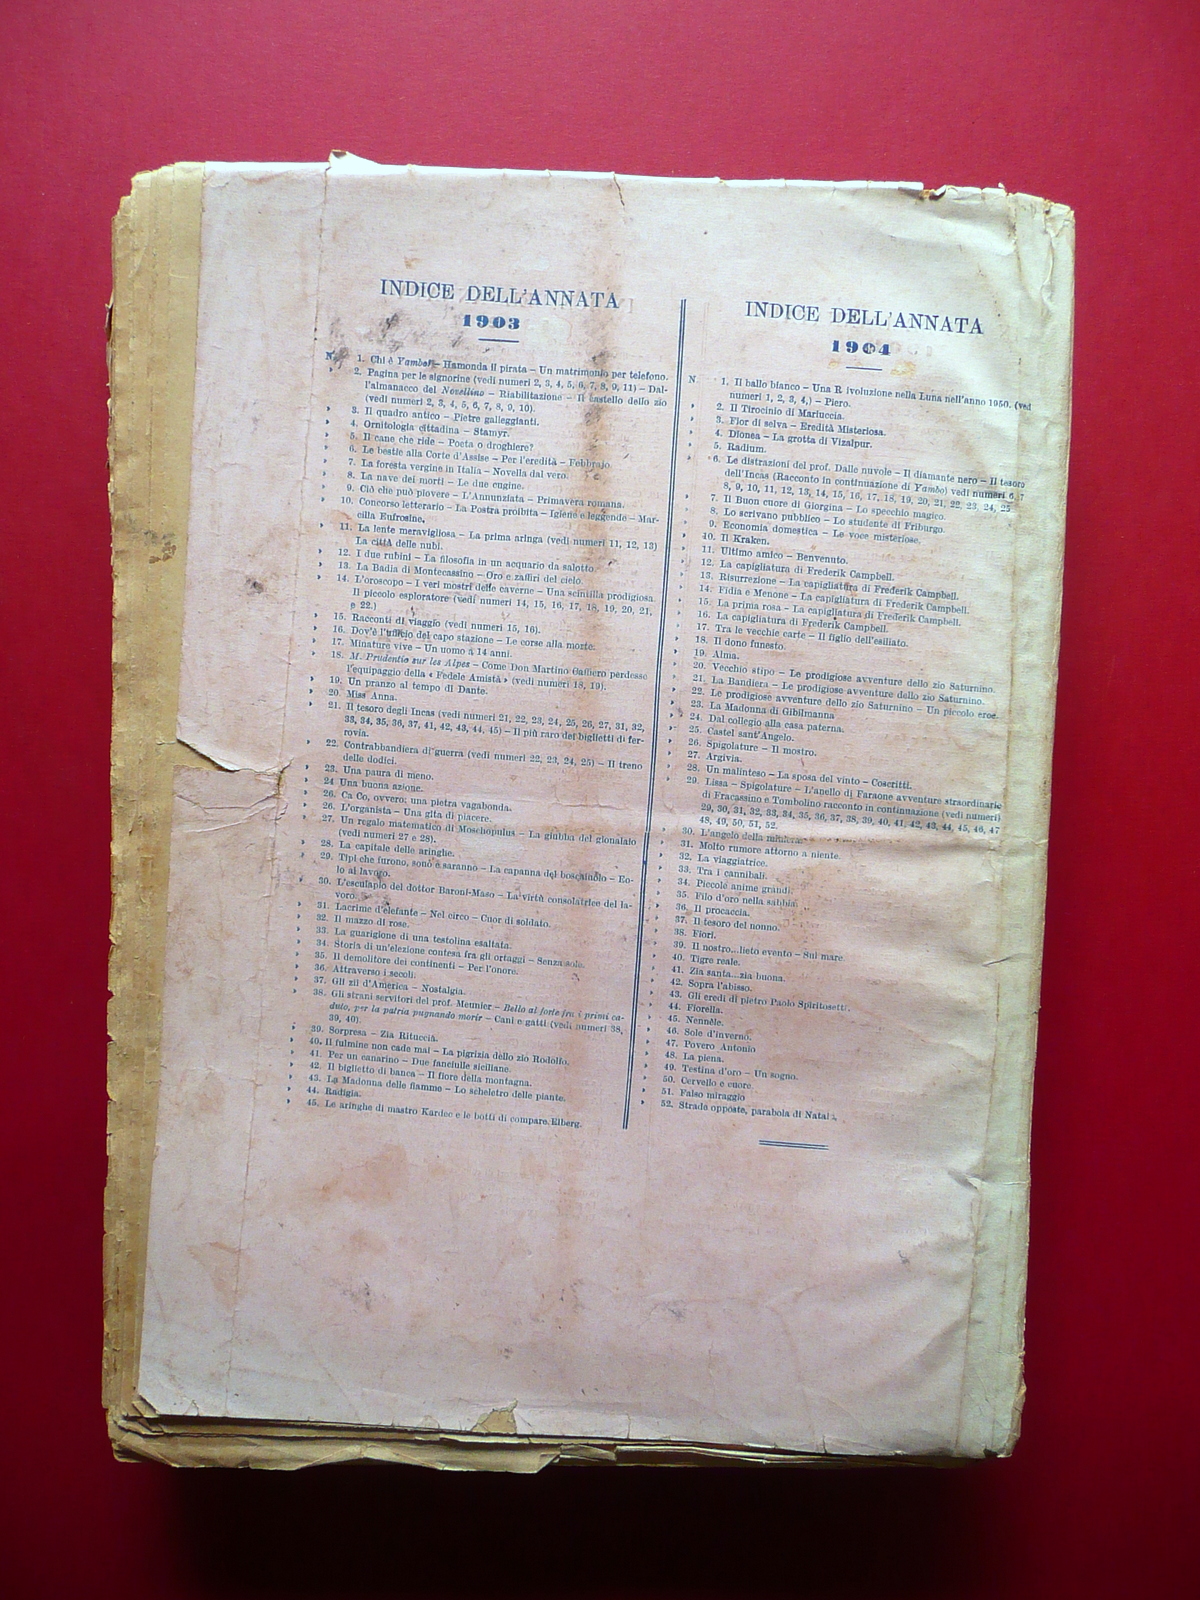 INDICE DELL'ANNATA
1903
N. 1. Chi è Yambo? – Hamonda il pirata – Un matrimonio per telefono.
» 2. Pagina per le signorine (vedi numeri 2, 3, 4, 5, 6, 7, 8, 9, 11) – Dal-
l'almanacco del Novellino – Riabilitazione – Il castello dello zio
(vedi numeri 2, 3, 4, 5, 6, 7, 8, 9, 10).
» 3. Il quadro antico – Pietre galleggianti.
» 4. Ornitologia cittadina – Stamyr.
» 5. Il cane che ride – Poeta o droghiere?
» 6. Le bestie alla Corte d'Assise – Per l'eredità – Febbraio
» 7. La foresta vergine in Italia – Novella dal vero.
» 8. La nave dei morti – Le due cugine.
» 9. Ciò che può piovere – L'Annunziata – Primavera romana.
» 10. Concorso letterario – La Postra proibita – Igiene e leggende – Mar-
cilla Eufrosine,
» 11. La lente meravigliosa – La prima aringa (vedi numeri 11, 12, 13)
La città delle nubi.
» 12. I due rubini – La filosofia in un acquario da salotto.
» 13. La Badia di Montecassino – Oro e zaffiri del cielo.
» 14. L'oroscopo – I veri mostri delle caverne – Una scintilla prodigiosa.
Il piccolo esploratore (vedi numeri 14, 15, 16, 17, 18, 19, 20, 21,
e 22.)
» 15. Racconti di viaggio (vedi numeri 15, 16).
» 16. Dov'è l'uficio del capo stazione – Le corse alla morte.
» 17. Minature vive – Un uomo a 14 anni.
» 18. M. Prudentio sur les Alpes – Come Don Martino Gaffiero perdesse
l'equipaggio della « Fedele Amistà » (vedi numeri 18, 19).
» 19. Un pranzo al tempo di Dante.
» 20. Miss Anna.
» 21. Il tesoro degli Incas (vedi numeri 21, 22, 23, 24, 25, 26, 27, 31, 32,
33, 34, 35, 36, 37, 41, 42, 43, 44, 45) – Il più raro dei biglietti di fer-
rovia.
» 22. Contrabbandiera di guerra (vedi numeri 22, 23, 24, 25) – Il treno
delle dodici.
» 23. Una paura di meno.
» 24 Una buona azione.
» 26. Ca Co, ovvero: una pietra vagabonda.
» 26. L'organista – Una gita di piacere.
» 27. Un regalo matematico di Moschopulus – La giubba del gionalaio
(vedi numeri 27 e 28).
» 28. La capitale delle aringhe.
» 29. Tipi che furono, sono e saranno – La capanna del boscaiuolo – Eo-
lo al lavoro.
» 30. L'esculapio del dottor Baroni-Maso – La virtù consolatrice del la-
voro.
» 31. Lacrime d'elefante – Nel circo – Cuor di soldato.
» 32. Il mazzo di rose.
» 33. La guarigione di una testolina esaltata.
» 34. Storia di un'elezione contesa fra gli ortaggi – Senza sole.
» 35. Il demolitore dei continenti – Per l'onore.
» 36. Attraverso i secoli.
» 37. Gli zii d'America – Nostalgia.
» 38. Gli strani servitori del prof. Meunier – Bello al forte fra i primi ca-
duto, per la patria pugnando morir – Cani e gatti (vedi numeri 38,
39, 40).
» 39. Sorpresa – Zia Rituccia.
» 40. Il fulmine non cade mai – La pigrizia dello zio Rodolfo.
» 41. Per un canarino – Due fanciulle siciliane.
» 42. Il biglietto di banca – Il fiore della montagna.
» 43. La Madonna delle fiamme – Lo scheletro delle piante.
» 44. Radigia.
» 45. Le aringhe di mastro Kardec e le botti di compare Elberg.
INDICE DELL'ANNATA
1904
N. 1. Il ballo bianco – Una R ivoluzione nella Luna nell'anno 1950. (ved
numeri 1, 2, 3, 4,) – Piero.
» 2. Il Tirocinio di Mariuccia.
» 3. Fior di selva – Eredità Misteriosa.
» 4. Dionea – La grotta di Vizalpur.
» 5. Radium.
» 6. Le distrazioni del prof. Dalle nuvole – Il diamante nero – Il tesoro
dell'Incas (Racconto in continuazione di Yambo) vedi numeri 6, 7
8, 9, 10, 11, 12, 13, 14, 15, 16, 17, 18, 19, 20, 21, 22, 23, 24, 25.
» 7. Il Buon cuore di Giorgina – Lo specchio magico.
» 8. Lo scrivano pubblico – Lo studente di Friburgo.
» 9. Economia domestica – Le voce misteriose.
» 10. Il Kraken.
» 11. Ultimo amico – Benvenuto.
» 12. La capigliatura di Frederik Campbell.
» 13. Risurrezione – La capigliatura di Frederik Campbell.
» 14. Fidia e Menone – La capigliatura di Frederik Campbell.
» 15. La prima rosa – La capigliatura di Frederik Campbell.
» 16. La capigliatura di Frederik Campbell.
» 17. Tra le vecchie carte – Il figlio dell'esiliato.
» 18. Il dono funesto.
» 19. Alma.
» 20. Vecchio stipo – Le prodigiose avventure dello zio Saturnino.
» 21. La Bandiera – Le prodigiose avventure dello zio Saturnino.
» 22. Le prodigiose avventure dello zio Saturnino – Un piccolo eroe.
» 23. La Madonna di Gibilmanna
» 24. Dal collegio alla casa paterna.
» 25. Castel sant'Angelo.
» 26. Spigolature – Il mostro.
» 27. Argivia.
» 28. Un malinteso – La sposa del vinto – Coscritti.
» 29. Lissa – Spigolature – L'anello di Faraone avventure straordinarie
di Fracassino e Tombolino racconto in continuazione (vedi numeri)
29, 30, 31, 32, 33, 34, 35, 36, 37, 38, 39, 40, 41, 42, 43, 44, 45, 46, 47
48, 49, 50, 51, 52.
» 30. L'angelo della miniera.
» 31. Molto rumore attorno a niente.
» 32. La viaggiatrice.
» 33. Tra i cannibali.
» 34. Piccole anime grandi.
» 35. Filo d'oro nella sabbia
» 36. Il procaccia.
» 37. Il tesoro del nonno.
» 38. Fiori.
» 39. Il nostro...lieto evento – Sul mare.
» 40. Tigre reale.
» 41. Zia santa...zia buona.
» 42. Sopra l'abisso.
» 43. Gli eredi di pietro Paolo Spiritosetti.
» 44. Fiorella.
» 45. Nennèle.
» 46. Sole d'inverno.
» 47. Povero Antonio
» 48. La piena.
» 49. Testina d'oro – Un sogno.
» 50. Cervello e cuore.
» 51. Falso miraggio
» 52. Strade opposte, parabola di Natale.